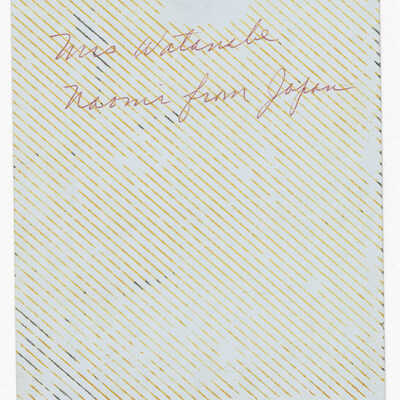 Mrs Watanabe
Naomi from Japan